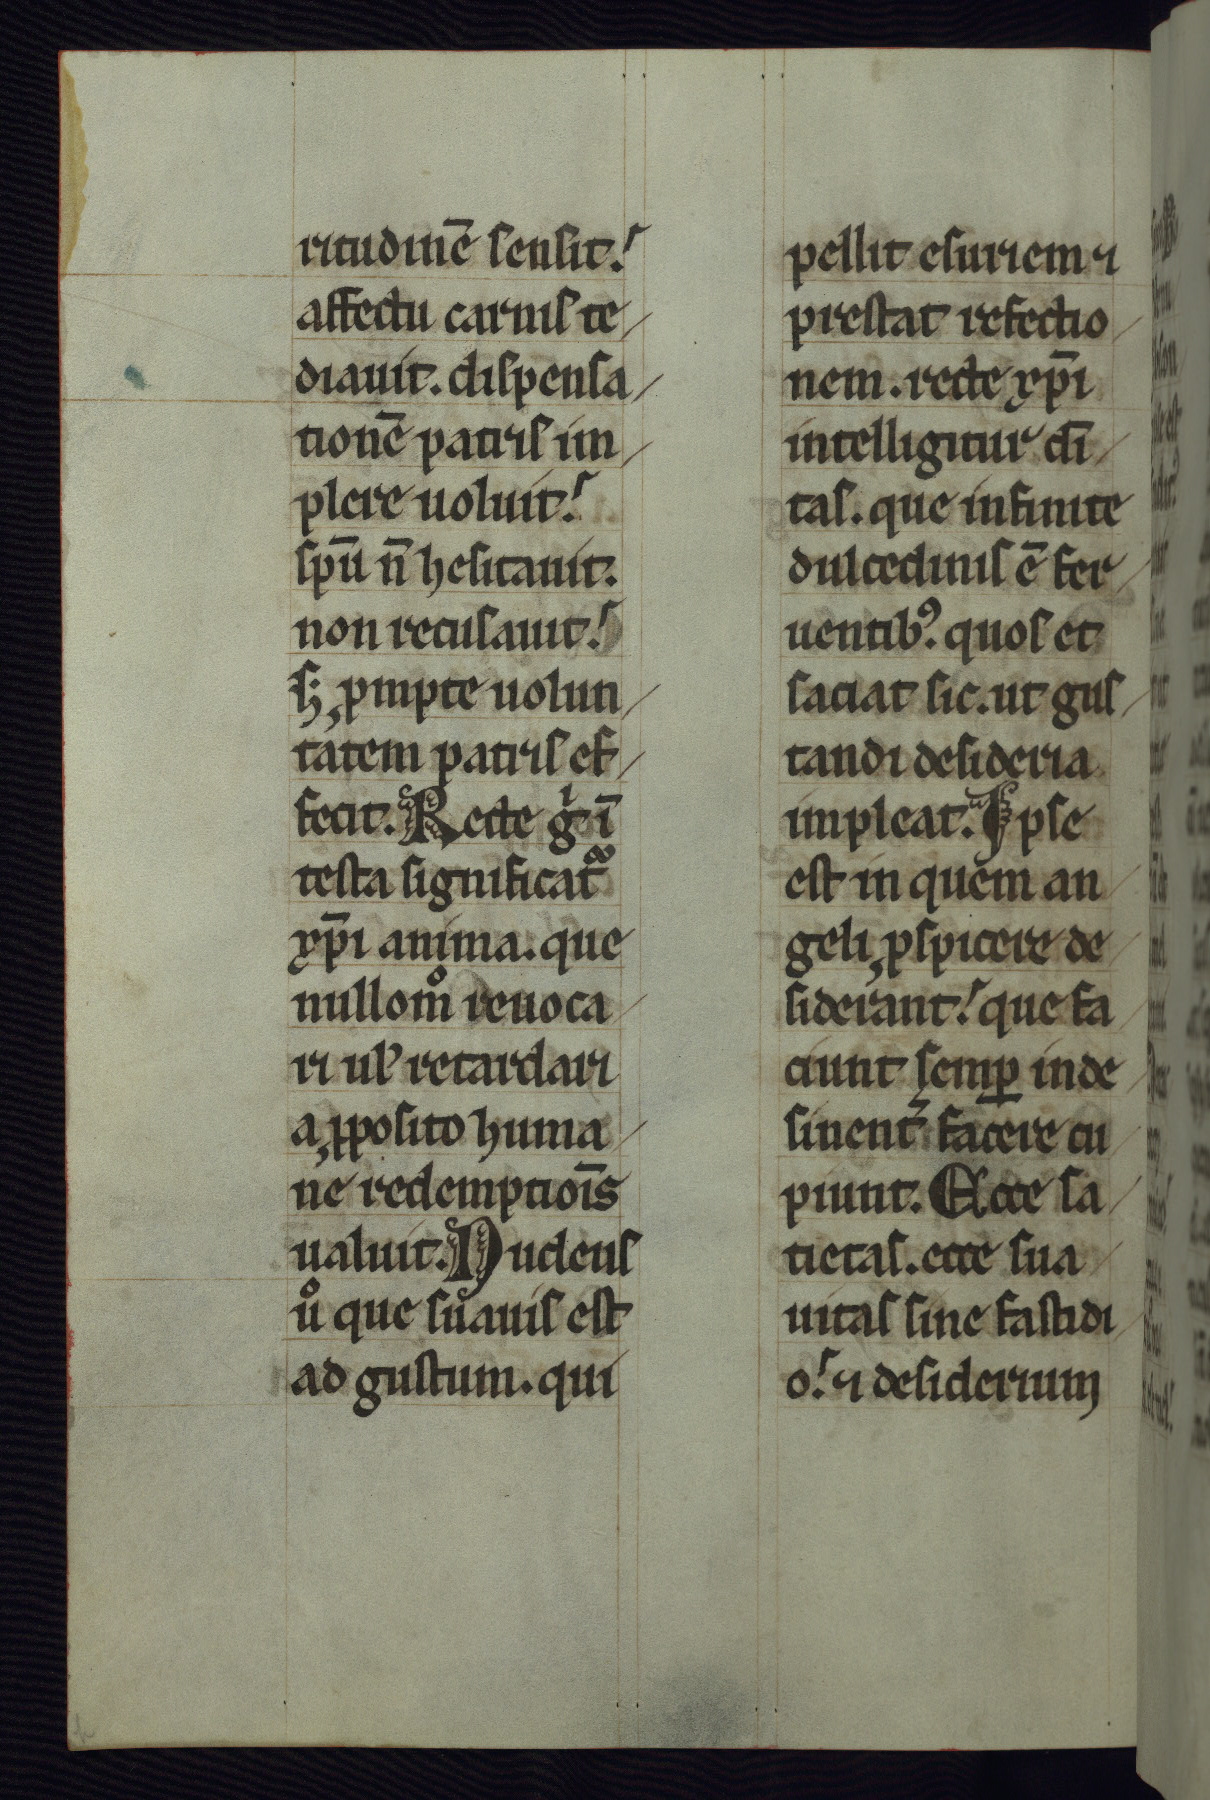 ritudinē sensit.
affectu carnis te
diauit. dispensa
tionē patris im
plere uoluit.
sp̄u n̄ hesitauit.
non recusauit.
sꝫ ꝓmpte uolun
tatem patris ef
fecit. Recte gͥ ī
testa significat᷑
xp̄i anima. que
nullom̊ reuoca
ri ul̛ retardari
a ꝓposito huma
ne redemptiōis
ualuit. Nucleus
ů que suauis est
ad gustum. qui
pellit esuriem ⁊
prestat refectio
nem. recte xp̄i
intelligitur di̅
tas. que infinite
dulcedinis ē fer
uentibꝰ. quos et
saciat sic. ut gus
tandi desideria
impleat. Ipse
est in quem an
geli ꝓspicere de
siderant. que fa
ciunt semꝑ inde
sinent᷑ facere cu
piunt. Ecce sa
tietas. ecce sua
uitas sine fastidi
o. ⁊ desiderium